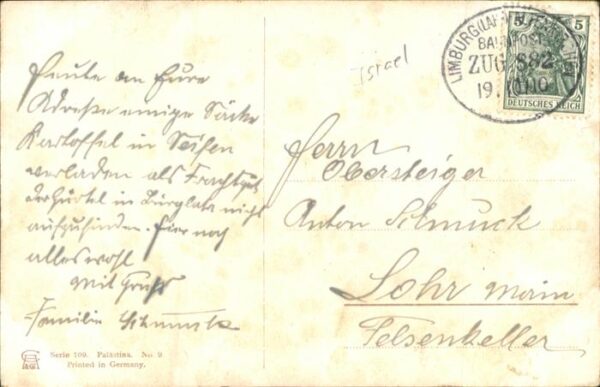 Heute an Eure
Adreße einige Säcke
Kartoffel in Seifen
verladen als Frachtgut
der Gürtel in Burglahr nicht
aufzufinden. Hier noch
alles wohl
Mit Gruß
Familie Schmuck
Israel
LIMBURG (LAHN)
BAHNPOST
ZUG 882
19.
5 5
DEUTSCHES REICH
Herrn
Obersteiger
Anton Schmuck
Lohr Main
Felsenkeller
Serie 109. Palästina. No 9
Printed in Germany.